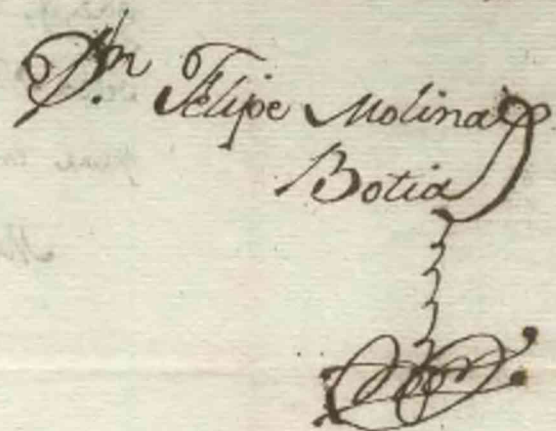 Dn Felipe Molina
Botia